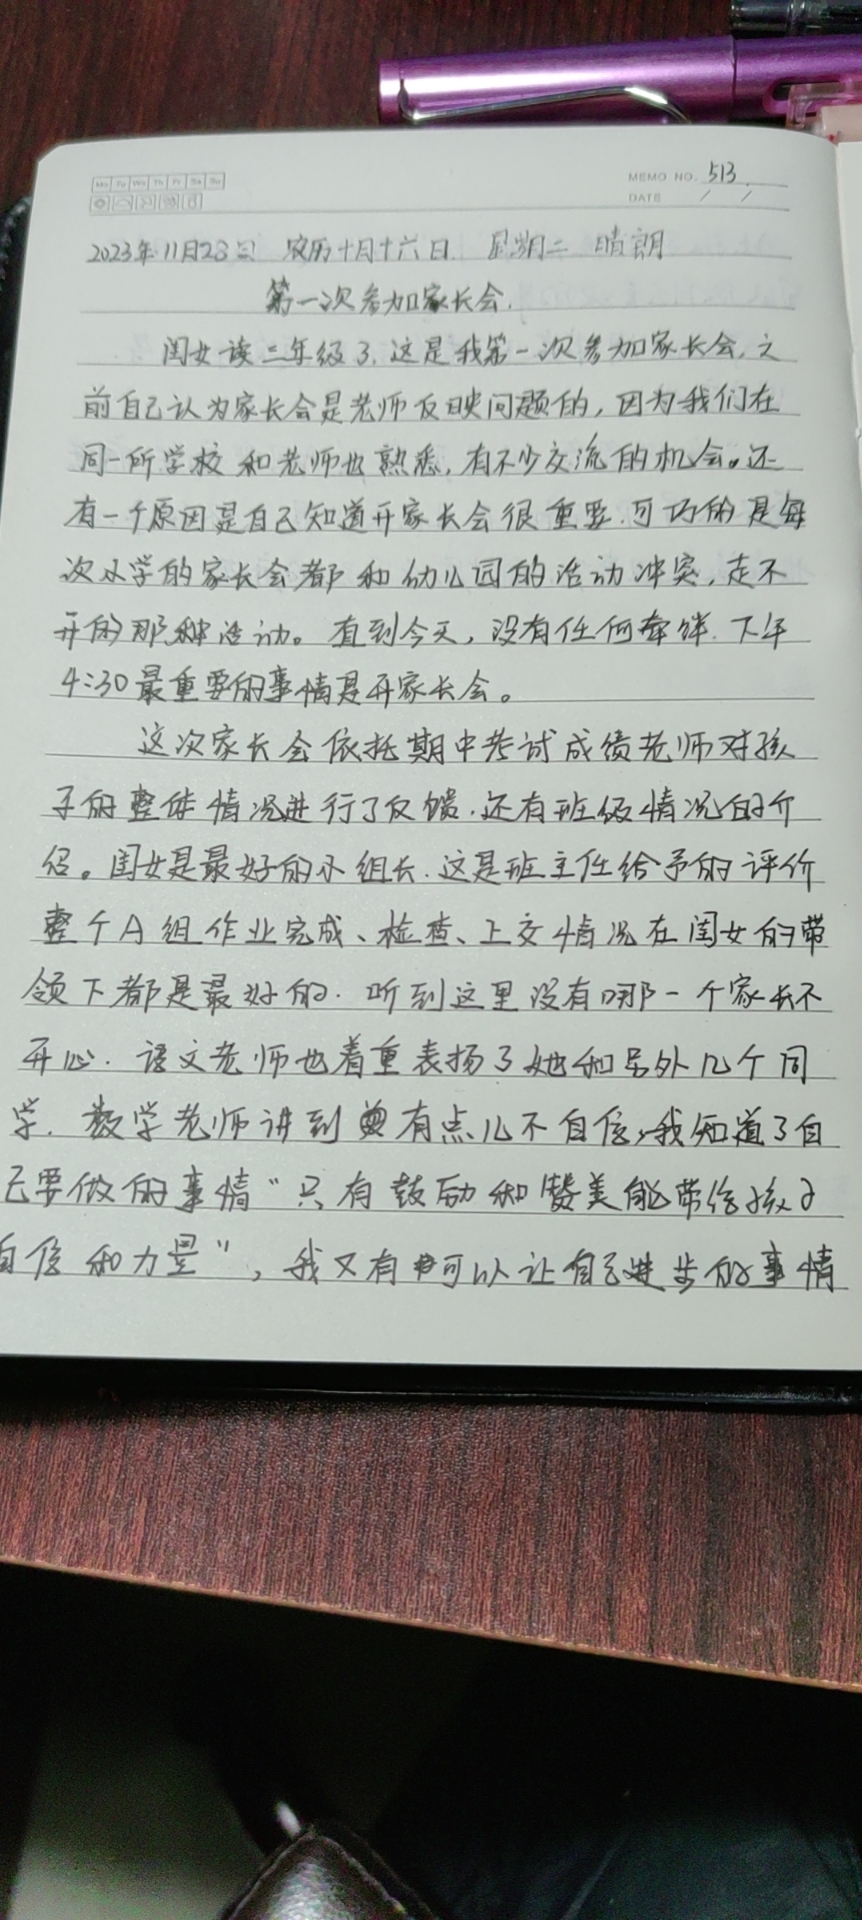 Mo Tu We Th Fr Sa Su
MEMO NO. 513
DATE / /
2023年11月28日 农历十月十六日 星期二 晴朗
第一次参加家长会.
闺女读三年级了,这是我第一次参加家长会,之
前自己认为家长会是老师反映问题的,因为我们在
同一所学校和老师也熟悉,有不少交流的机会。还
有一个原因是自己知道开家长会很重要.可巧的是每
次小学的家长会都和幼儿园的活动冲突,走不
开的那种活动。直到今天,没有任何牵绊.下午
4:30最重要的事情是开家长会。
这次家长会依托期中考试成绩老师对孩
子的整体情况进行了反馈.还有班级情况的介
绍。闺女是最好的小组长.这是班主任给予的评价
整个A组作业完成、检查、上交情况在闺女的带
领下都是最好的.听到这里没有哪一个家长不
开心.语文老师也着重表扬了她和另外几个同
学.数学老师讲到有点儿不自信,我知道了自
己要做的事情"只有鼓励和赞美能带给孩子
自信和力量",我又有可以让自己进步的事情